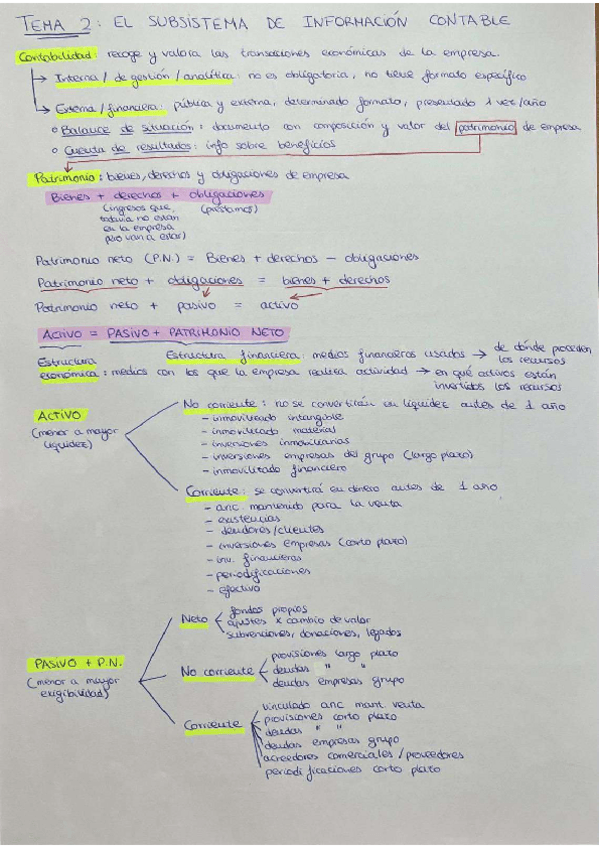 TEMA 2: EL SUBSISTEMA DE INFORMACIÓN CONTABLE
Contabilidad: recoge y valora las transacciones económicas de la empresa.
→ Interna / de gestión / analítica: no es obligatoria, no tiene formato específico
→ Externa / financiera: pública y externa, determinado formato, presentado 1 vez/año
o Balance de situación: documento con composición y valor del patrimonio de empresa
o Cuenta de resultados: info sobre beneficios
Patrimonio: bienes, derechos y obligaciones de empresa
Bienes + derechos + obligaciones
(ingresos que todavía no están en la empresa pero van a estar)
(préstamos)
Patrimonio neto (P.N.) = Bienes + derechos - obligaciones
Patrimonio neto + obligaciones = bienes + derechos
Patrimonio neto + pasivo = activo
ACTIVO = PASIVO + PATRIMONIO NETO
Estructura financiera: medios financieros usados → de dónde proceden los recursos
Estructura económica: medios con los que la empresa realiza actividad → en qué activos están invertidos los recursos
ACTIVO
(menor a mayor liquidez)
No corriente: no se convertirán en liquidez antes de 1 año
- inmovilizado intangible
- inmovilizado material
- inversiones inmobiliarias
- inversiones empresas del grupo (largo plazo)
- inmovilizado financiero
Corriente: se convertirá en dinero antes de 1 año
- anc. mantenido para la venta
- existencias
- deudores/clientes
- inversiones empresas (corto plazo)
- inv. financieras
- periodificaciones
- efectivo
PASIVO + P.N.
(menor a mayor exigibilidad)
Neto
fondos propios
ajustes x cambio de valor
subvenciones, donaciones, legados
No corriente
provisiones largo plazo
deudas " "
deudas empresas grupo
Corriente
vinculado anc mant venta
provisiones corto plazo
deudas " "
deudas empresas grupo
acreedores comerciales / proveedores
periodificaciones corto plazo